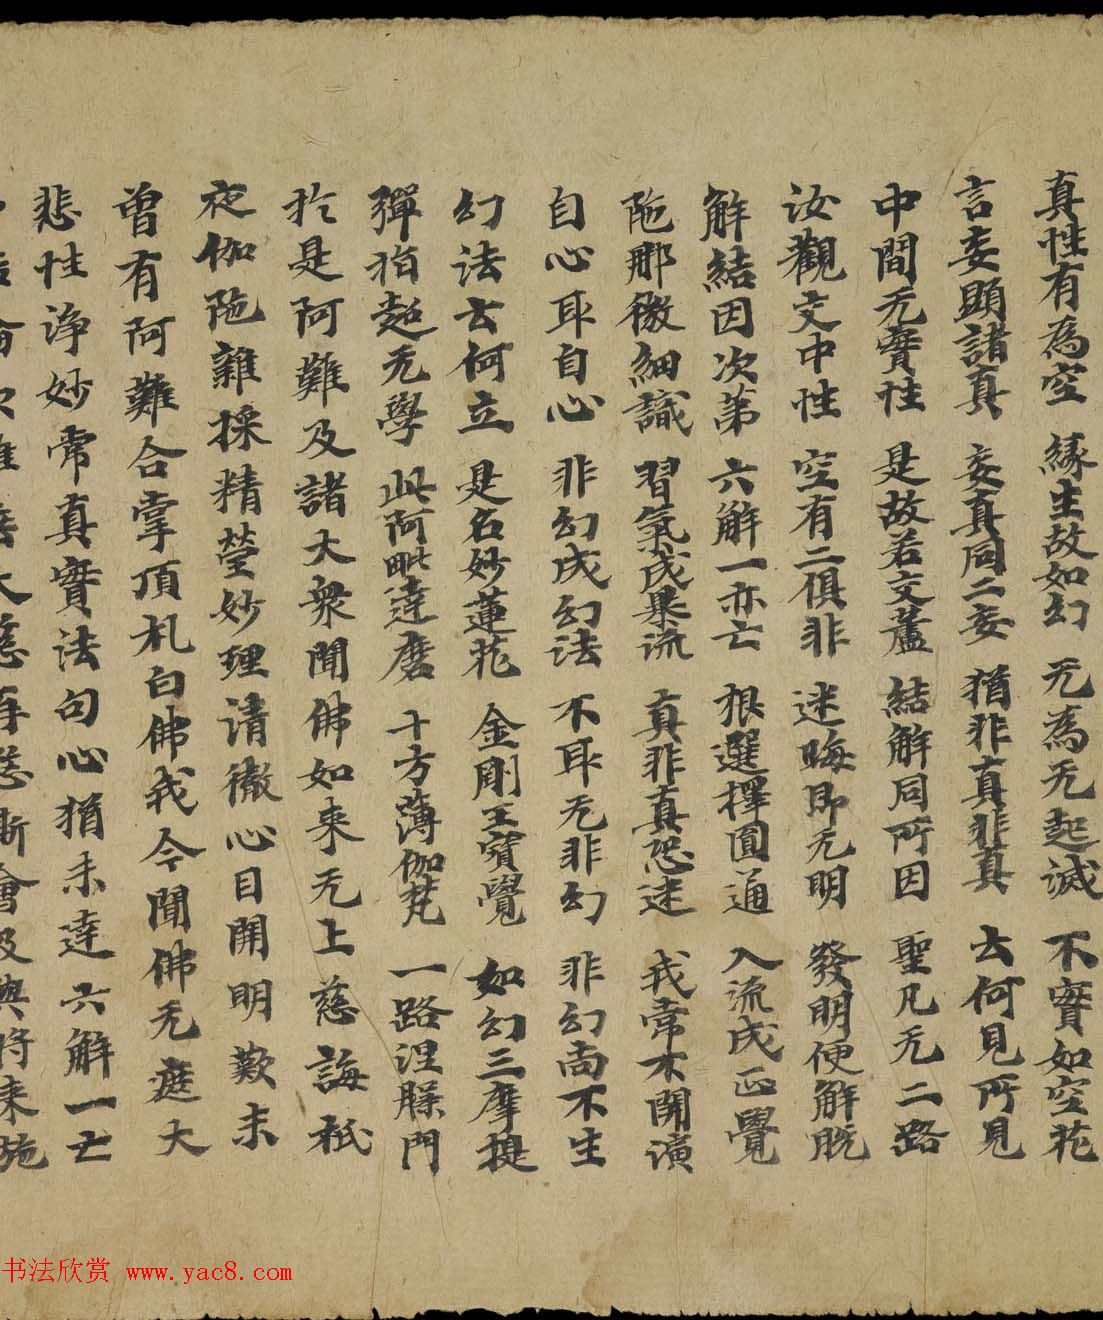 真性有為空 緣生故如幻 无為无起滅 不實如空花
言妄顯諸真 妄真同二妄 猶非真非真 云何見所見
中間无實性 是故若交蘆 結解同所因 聖凡无二路
汝觀交中性 空有二俱非 迷晦即无明 發明便解脫
解結因次第 六解一亦亡 根選擇圓通 入流成正覺
陁那微細識 習氣成暴流 真非真恐迷 我常不開演
自心取自心 非幻成幻法 不取无非幻 非幻尚不生
幻法云何立 是名妙蓮花 金剛王寶覺 如幻三摩提
彈指超无學 此阿毗達磨 十方薄伽梵 一路涅槃門
於是阿難及諸大衆聞佛如來无上慈誨祇
夜伽陁雜揉精瑩妙理清徹心目開明歎未
曾有阿難合掌頂礼白佛我今聞佛无遮大
悲性淨妙常真實法句心猶未達六解一亡
大慈再愍斯會及與將來施
书法欣赏 www.yac8.com